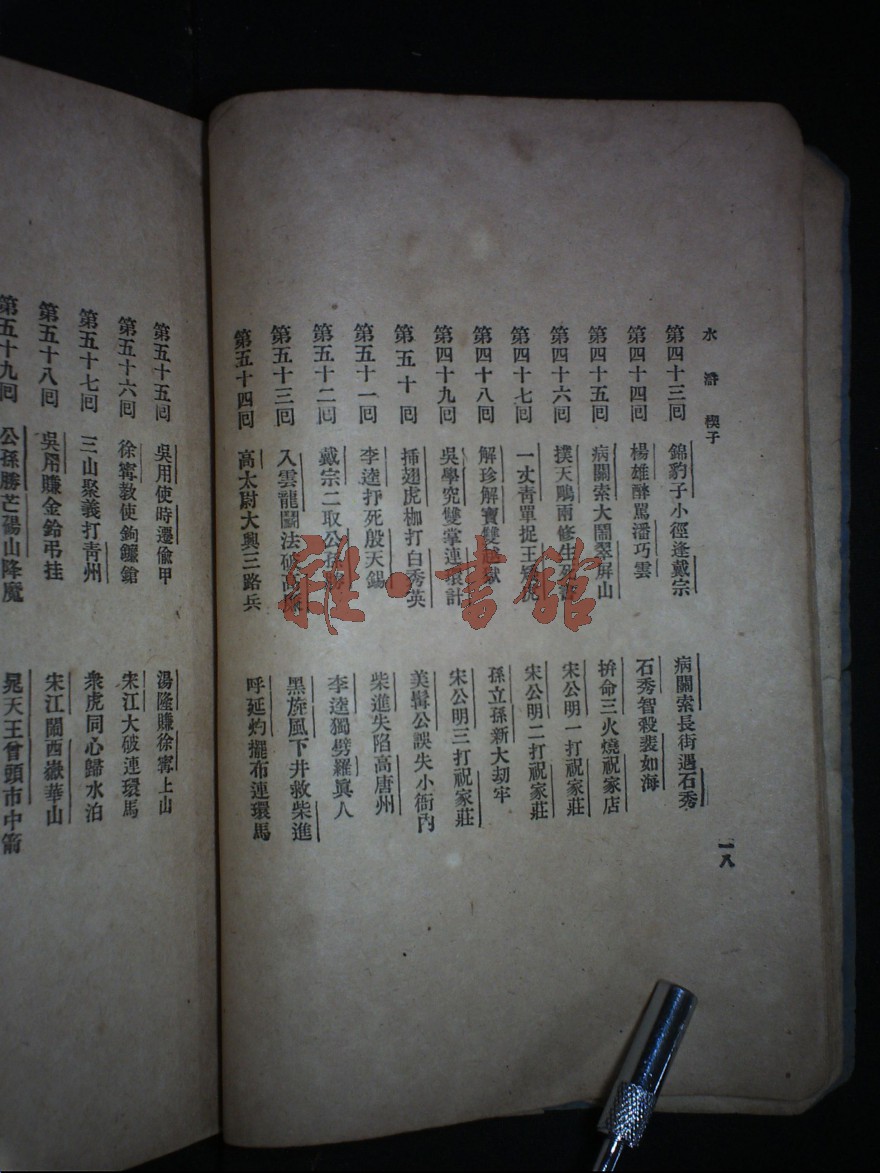 水滸 楔子
第四十三囘 錦豹子小徑逢戴宗 病關索長街遇石秀
第四十四囘 楊雄醉罵潘巧雲 石秀智殺裴如海
第四十五囘 病關索大鬧翠屏山 拚命三火燒祝家店
第四十六囘 撲天鵰兩修生死書 宋公明一打祝家莊
第四十七囘 一丈青單捉王矮虎 宋公明二打祝家莊
第四十八囘 解珍解寶雙越獄 孫立孫新大刧牢
第四十九囘 吳學究雙掌連環計 宋公明三打祝家莊
第五十囘 插翅虎枷打白秀英 美髯公誤失小衙內
第五十一囘 李逵打死殷天錫 柴進失陷高唐州
第五十二囘 戴宗二取公孫勝 李逵獨劈羅眞人
第五十三囘 入雲龍鬬法破高廉 黑旋風下井救柴進
第五十四囘 高太尉大興三路兵 呼延灼擺布連環馬
一八
第五十五囘 吳用使時遷偷甲 湯隆賺徐寗上山
第五十六囘 徐寗敎使鉤鐮鎗 宋江大破連環馬
第五十七囘 三山聚義打青州 衆虎同心歸水泊
第五十八囘 吳用賺金鈴弔挂 宋江鬧西嶽華山
第五十九囘 公孫勝芒碭山降魔 晁天王曾頭市中箭
雜·書館